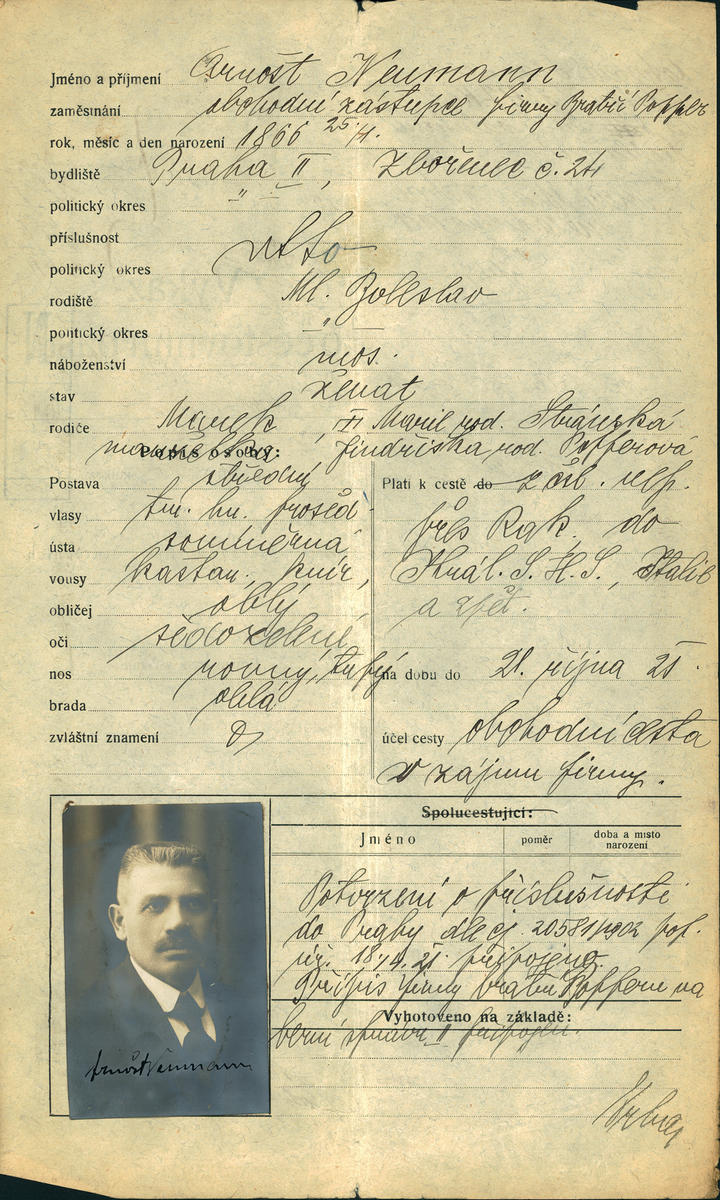 Jméno a příjmení Arnošt Neumann
zaměstnání obchodní zástupce firmy Bratří Popper
rok, měsíc a den narození 1866 25/1.
bydliště Praha II, Zbořenec č. 24
politický okres " —
příslušnost
politický okres
rodiště Ml. Boleslav
politický okres " —
náboženství mos.
stav ženat
rodiče Marek, Marie rod. Stránská
manželka: Jindřiška rod. Popperová
Popis osoby:
Postava střední
vlasy tm. hn. prošed.
ústa souměrná
vousy kaštan. knír,
obličej oblý
oči šedozelené
nos rovný, tupý
brada oblá
zvláštní znamení
Platí k cestě do z čsl. rep.
přes Rak. do
Král. S. H. S., Italie
a zpět.
na dobu do 21. října 21.
účel cesty obchodní cesta
v zájmu firmy.
Spolucestující:
Jméno poměr doba a místo narození
Potvrzení o příslušnosti
do Prahy dle čj. 20581/1902 pol.
18/4. 21. připojeno.
Přípis firmy bratří Popperů na
Vyhotoveno na základě:
berní správu II připojen.
Arnošt Neumann